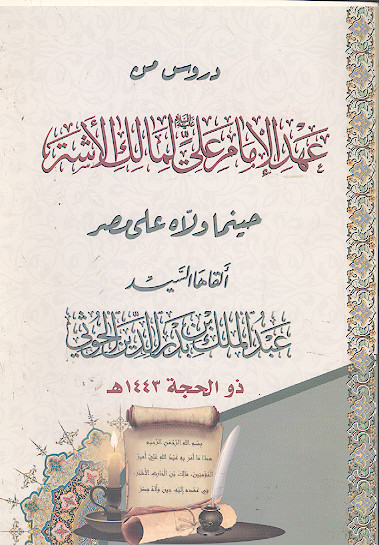 دروس من
عهد الإمام علي عليه السلام لمالك الأشتر
حينما ولاه على مصر
ألقاها السيد
عبد الملك بدر الدين الحوثي
ذو الحجة ١٤٤٣هـ
بسم الله الرحمن الرحيم
هذا ما أمر به عبد الله علي أمير
المؤمنين، مالك بن الحارث الأشتر
في عهده إليه حين ولاه مصر